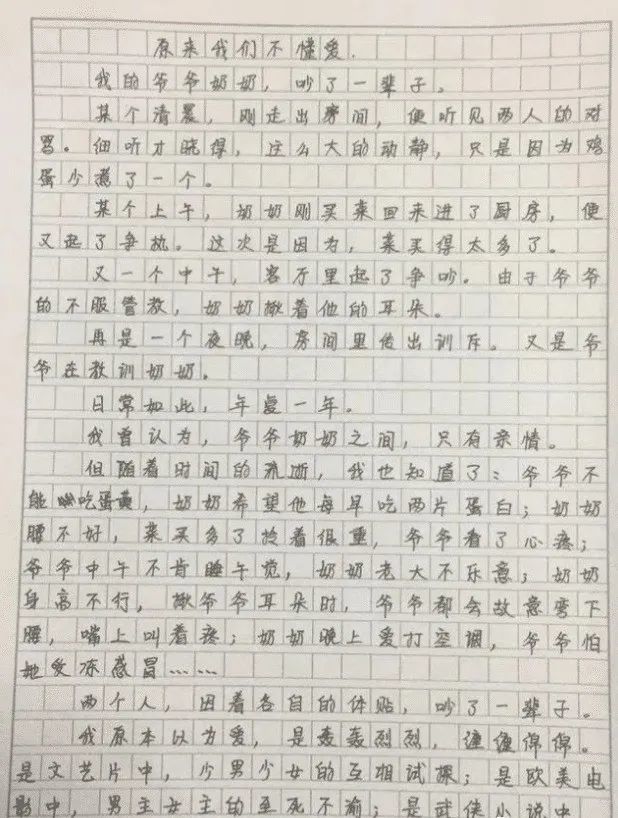 原来我们不懂爱.
我的爷爷奶奶，吵了一辈子。
某个清晨，刚走出房间，便听见两人的对
骂。细听才晓得，这么大的动静，只是因为鸡
蛋少煮了一个。
某个上午，奶奶刚买菜回来进了厨房，便
又起了争执。这次是因为，菜买得太多了。
又一个中午，客厅里起了争吵。由于爷爷
的不服管教，奶奶揪着他的耳朵。
再是一个夜晚，房间里传出训斥。又是爷
爷在教训奶奶。
日常如此，年复一年。
我曾认为，爷爷奶奶之间，只有亲情。
但随着时间的流逝，我也知道了：爷爷不
能吃蛋黄，奶奶希望他每早吃两片蛋白；奶奶
腰不好，菜买多了拎着很重，爷爷看了心疼；
爷爷中午不肯睡午觉，奶奶老大不乐意；奶奶
身高不行，揪爷爷耳朵时，爷爷都会故意弯下
腰，嘴上叫着疼；奶奶晚上爱打空调，爷爷怕
她受冻感冒……
两个人，因着各自的体贴，吵了一辈子。
我原本以为爱，是轰轰烈烈，缠缠绵绵。
是文艺片中，少男少女的互相试探；是欧美电
影中，男主女主的至死不渝；是武侠小说中